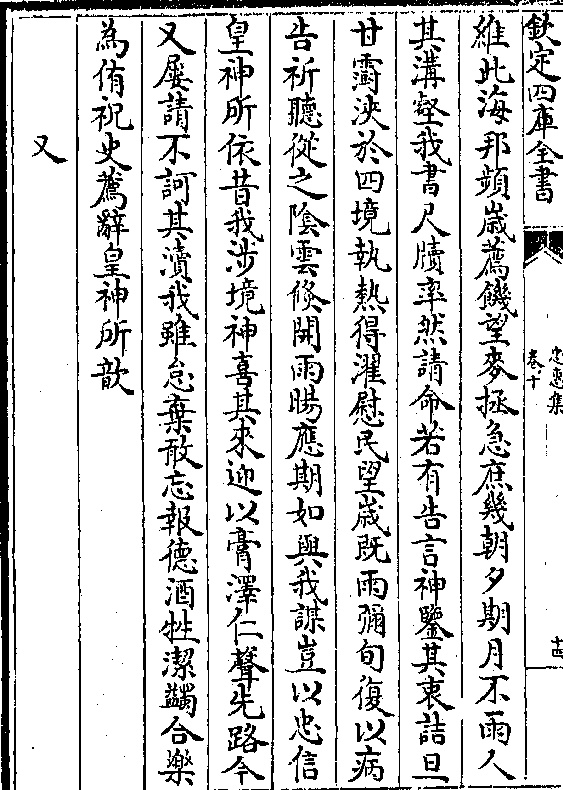 欽定四庫全書
忠惠集
卷十
十四
維此海邦頻歲薦饑望麥拯急庶幾朝夕期月不雨人
其溝壑我書尺牘率然請命若有告言神鑒其衷詰旦
甘霔浹於四境執熱得濯慰民望歲既雨彌旬復以病
告祈聽從之陰雲倐開雨暘應期如與我謀豈以忠信
皇神所依昔我涉境神喜其來迎以膏澤仁聲先路今
又屢請不訶其瀆我雖怠棄敢忘報德酒牲潔蠲合樂
為侑祝史薦辭皇神所歆
又